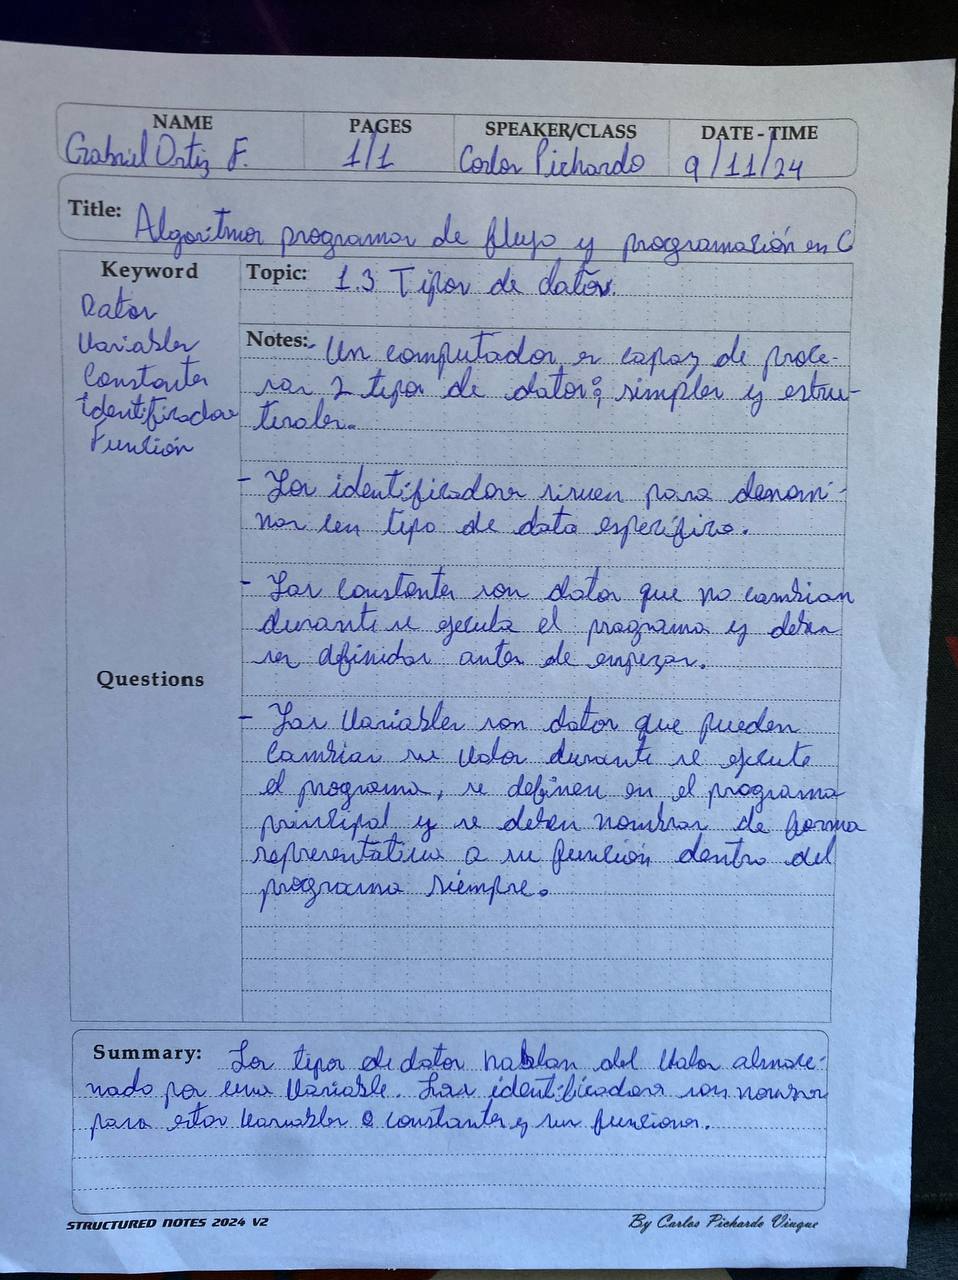 NAME PAGES SPEAKER/CLASS DATE - TIME
Gabriel Ortiz F. 1/1 Carlos Pichardo 9/11/24
Title: Algoritmos programas de flujo y programación en C
Keyword
Datos
Variables
Constantes
identificadores
Función
Questions
Topic: 1.3 Tipos de datos.
Notes:- Un computador es capaz de proce-
sar 2 tipos de datos; simples y estruc-
turales.
- Los identificadores sirven para denomi-
nar un tipo de dato específico.
- Las constantes son datos que no cambian
durante se ejecuta el programa y deben
ser definidas antes de empezar.
- Las variables son datos que pueden
cambiar su valor durante se ejecute
el programa, se definen en el programa
principal y se deben nombrar de forma
representativa a su función dentro del
programa siempre.
Summary: Los tipos de datos hablan del valor almace-
nado por una variable. Los identificadores son nombres
para estas variables o constantes y sus funciones.
STRUCTURED NOTES 2024 V2 By Carlos Pichardo Viuque